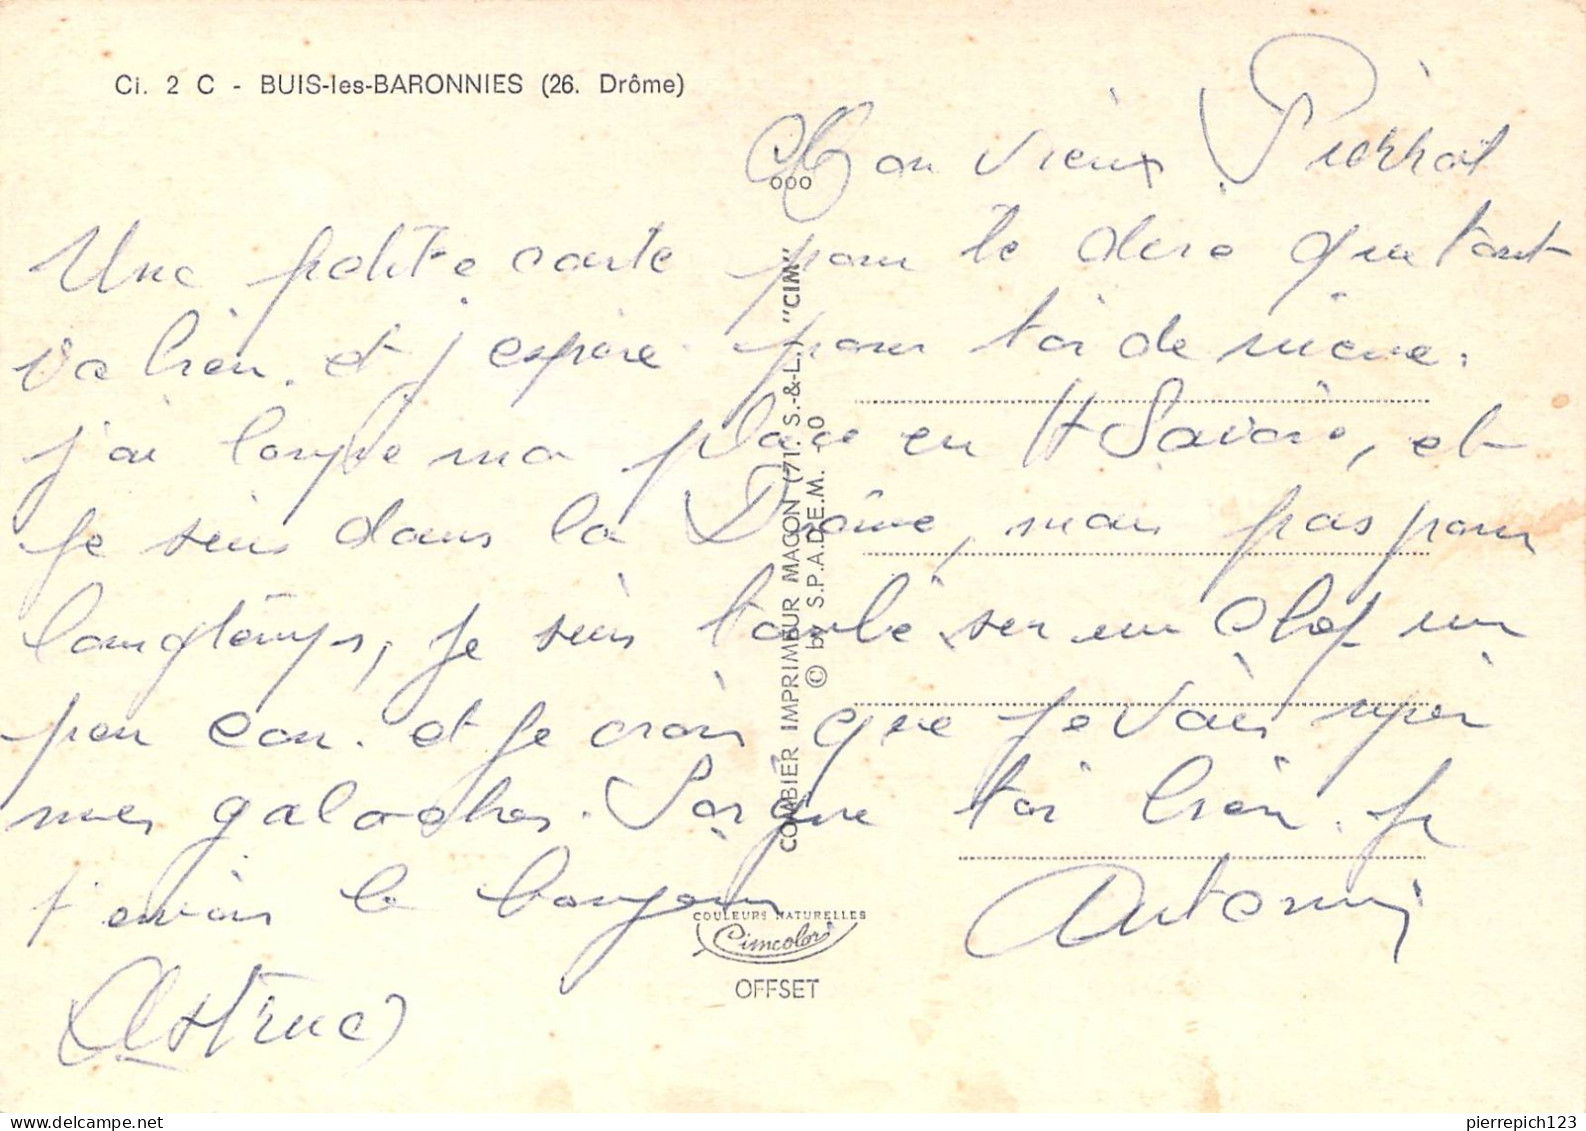 Ci. 2 C - BUIS-les-BARONNIES (26. Drôme)
Mon vieux Pierrot
Une petite carte pour te dire que tout
va bien. et j'espère pour toi de même.
j'ai loupé ma place en Ht Savoie, et
je suis dans la Drôme, mais pas pour
longtemps, je suis tombé sur un chef un
peu con. et je crois que je vais
mes galoches. Porte toi bien. je
t'envoie le bonjour
Antonin
(Astruc)
COMBIER IMPRIMEUR MACON (71. S.-&-L.) "CIM"
© by S.P.A.D.E.M. - O
ooo
COULEURS NATURELLES
Cimcolor
OFFSET
pierrepich123